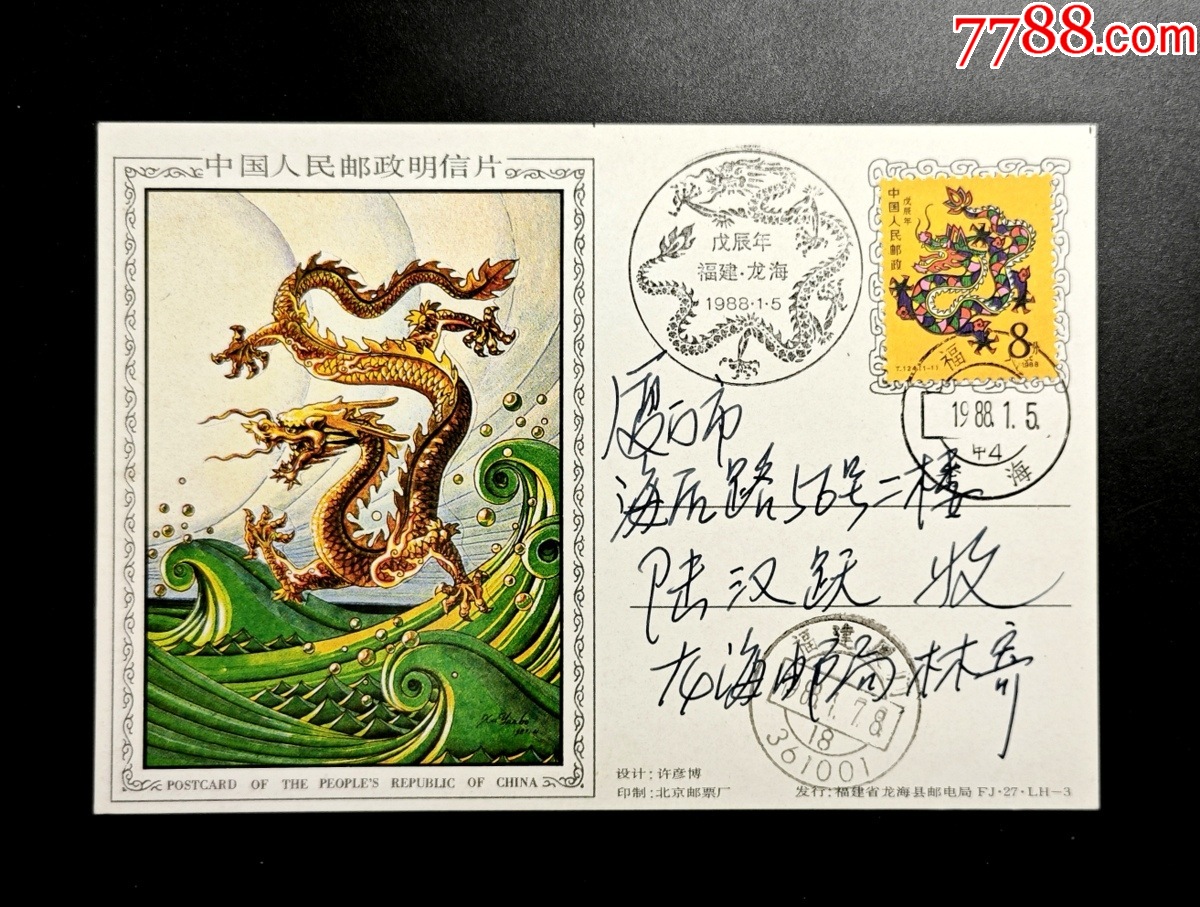 7788.com
中国人民邮政明信片
戊辰年
福建·龙海
1988·1·5
中国人民邮政
戊辰年
8分
T.124.(1-1)
1988
福
1988.1.5.
海
厦门市
海后路56号二楼
陆汉跃 收
龙海邮局林寄
福建
1988.1.7.8
18
361001
POSTCARD OF THE PEOPLE'S REPUBLIC OF CHINA
设计：许彦博
印制：北京邮票厂
发行：福建省龙海县邮电局 FJ·27·LH-3